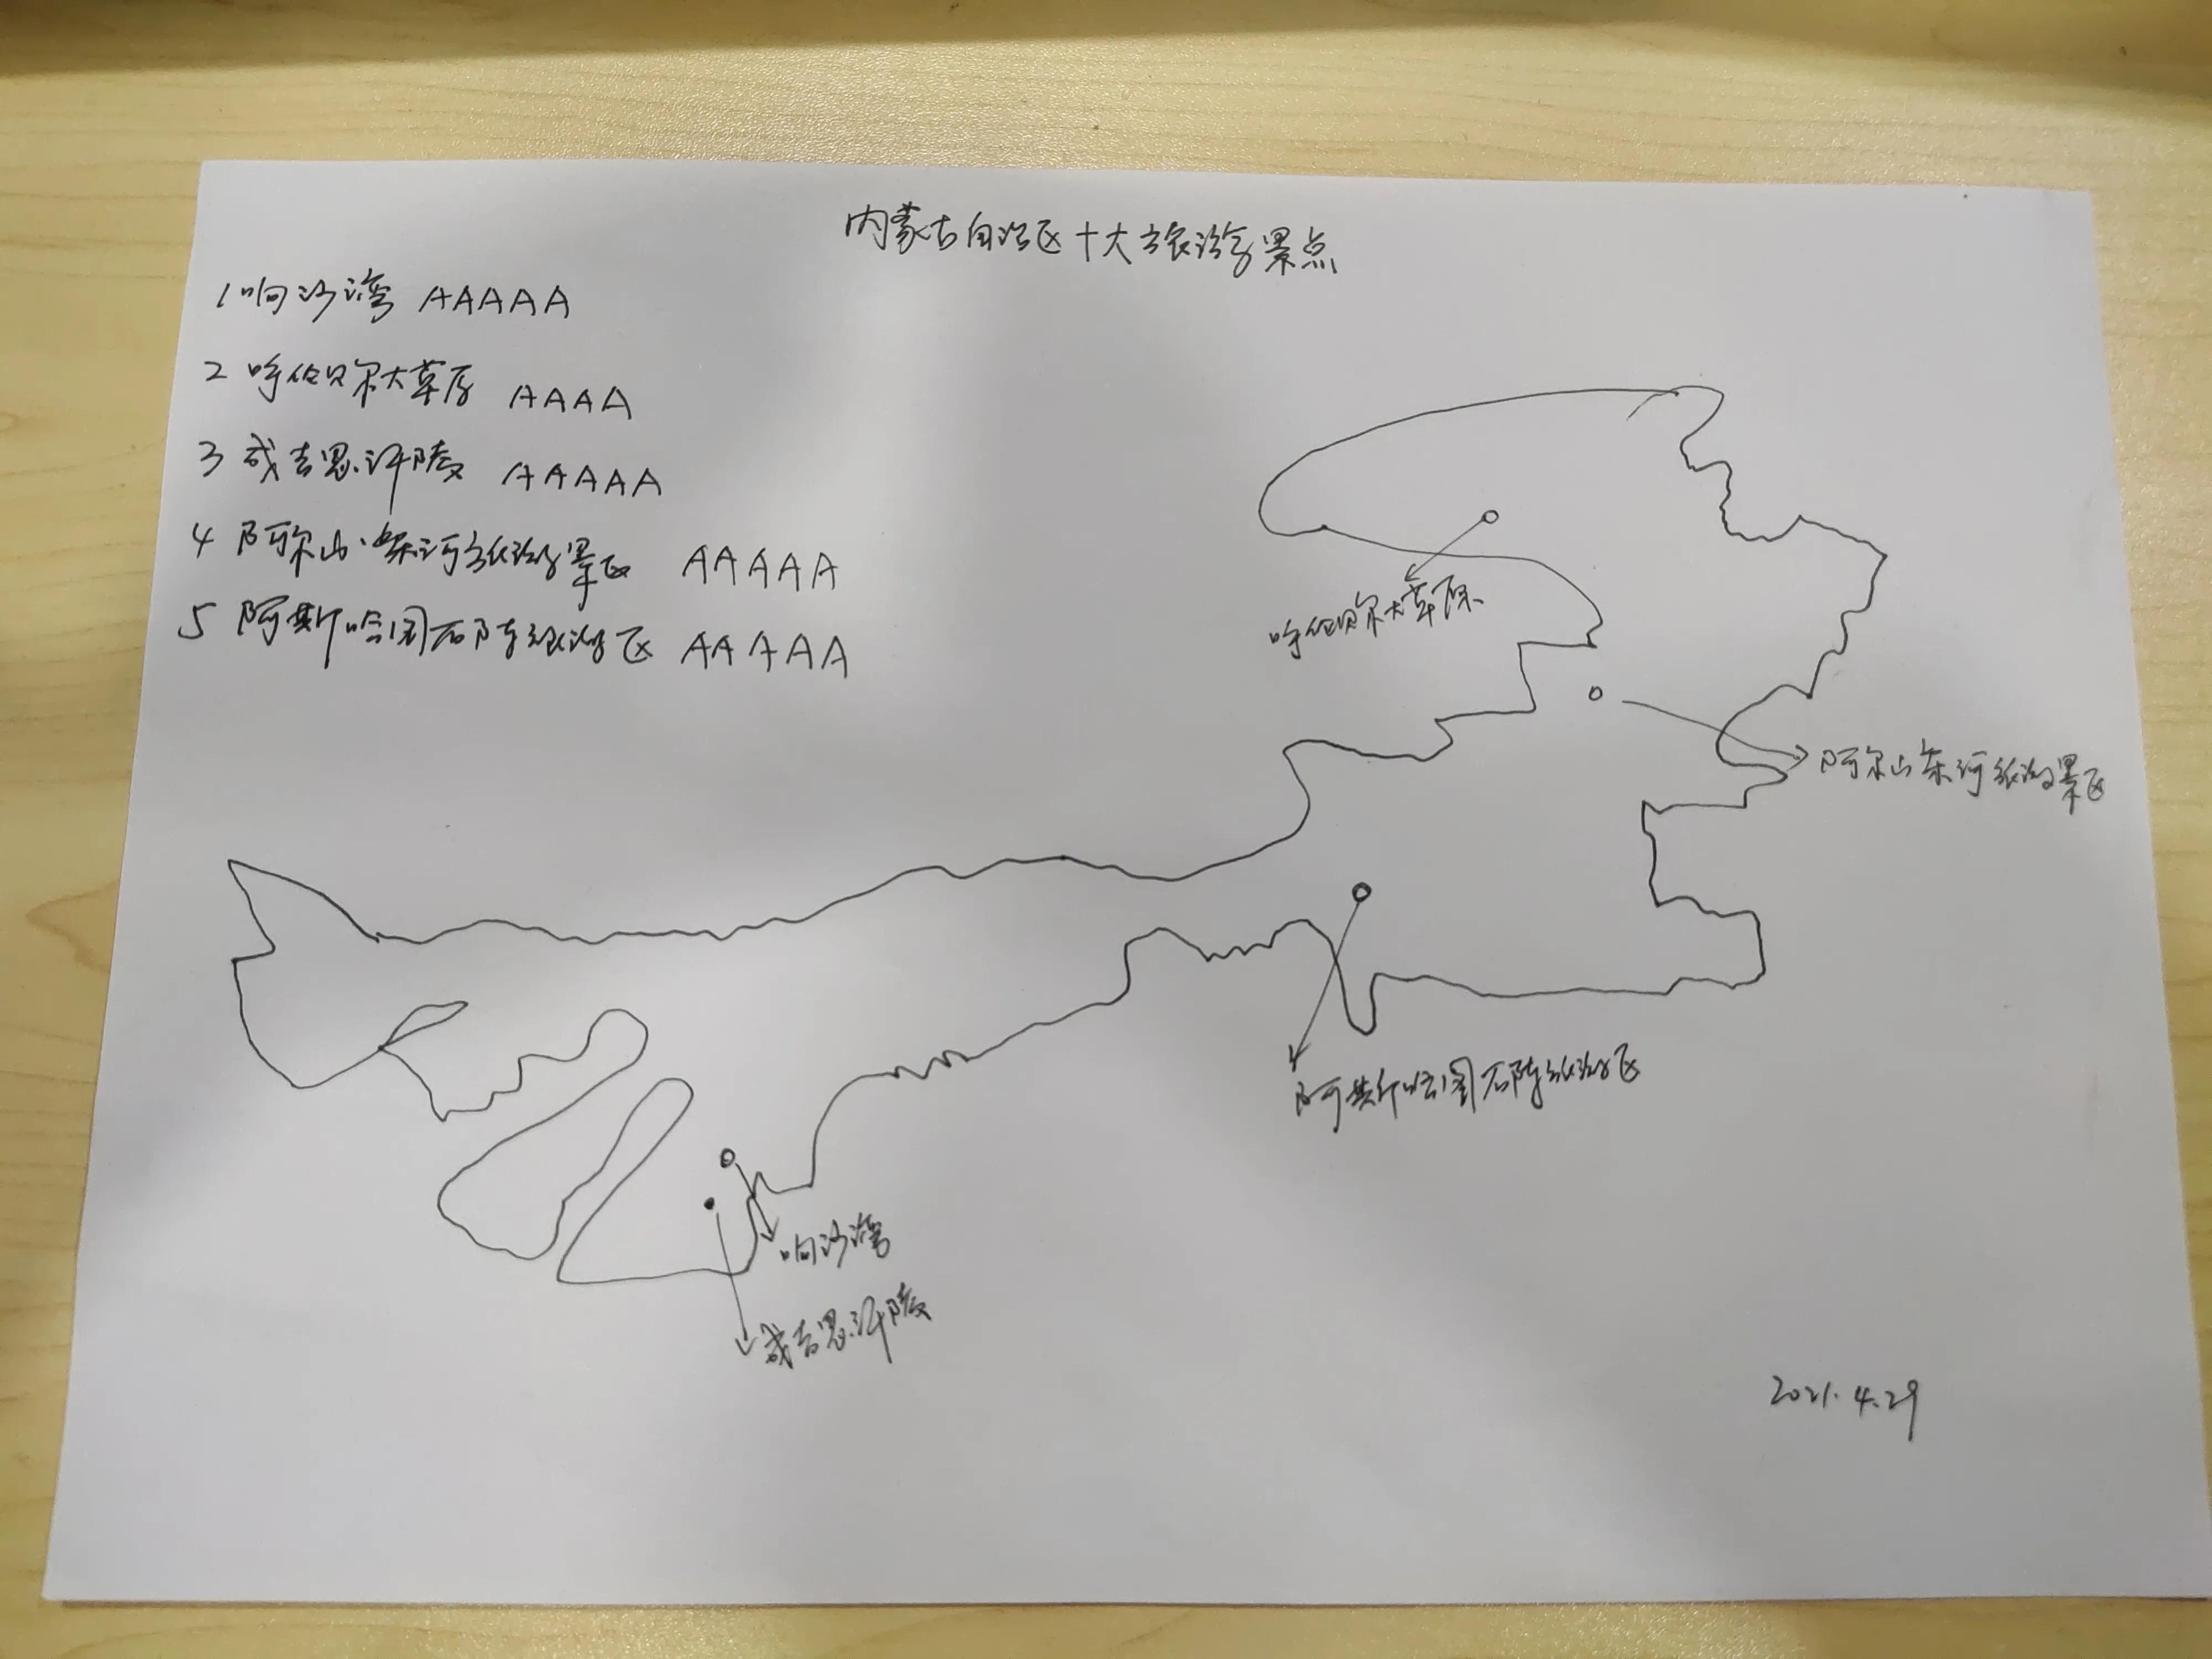 内蒙古自治区十大旅游景点
1 响沙湾 AAAAA
2 呼伦贝尔大草原 AAAA
3 成吉思汗陵 AAAAA
4 阿尔山·柴河旅游景区 AAAAA
5 阿斯哈图石阵旅游区 AAAAA
呼伦贝尔大草原
阿尔山柴河旅游景区
阿斯哈图石阵旅游区
响沙湾
成吉思汗陵
2021.4.29